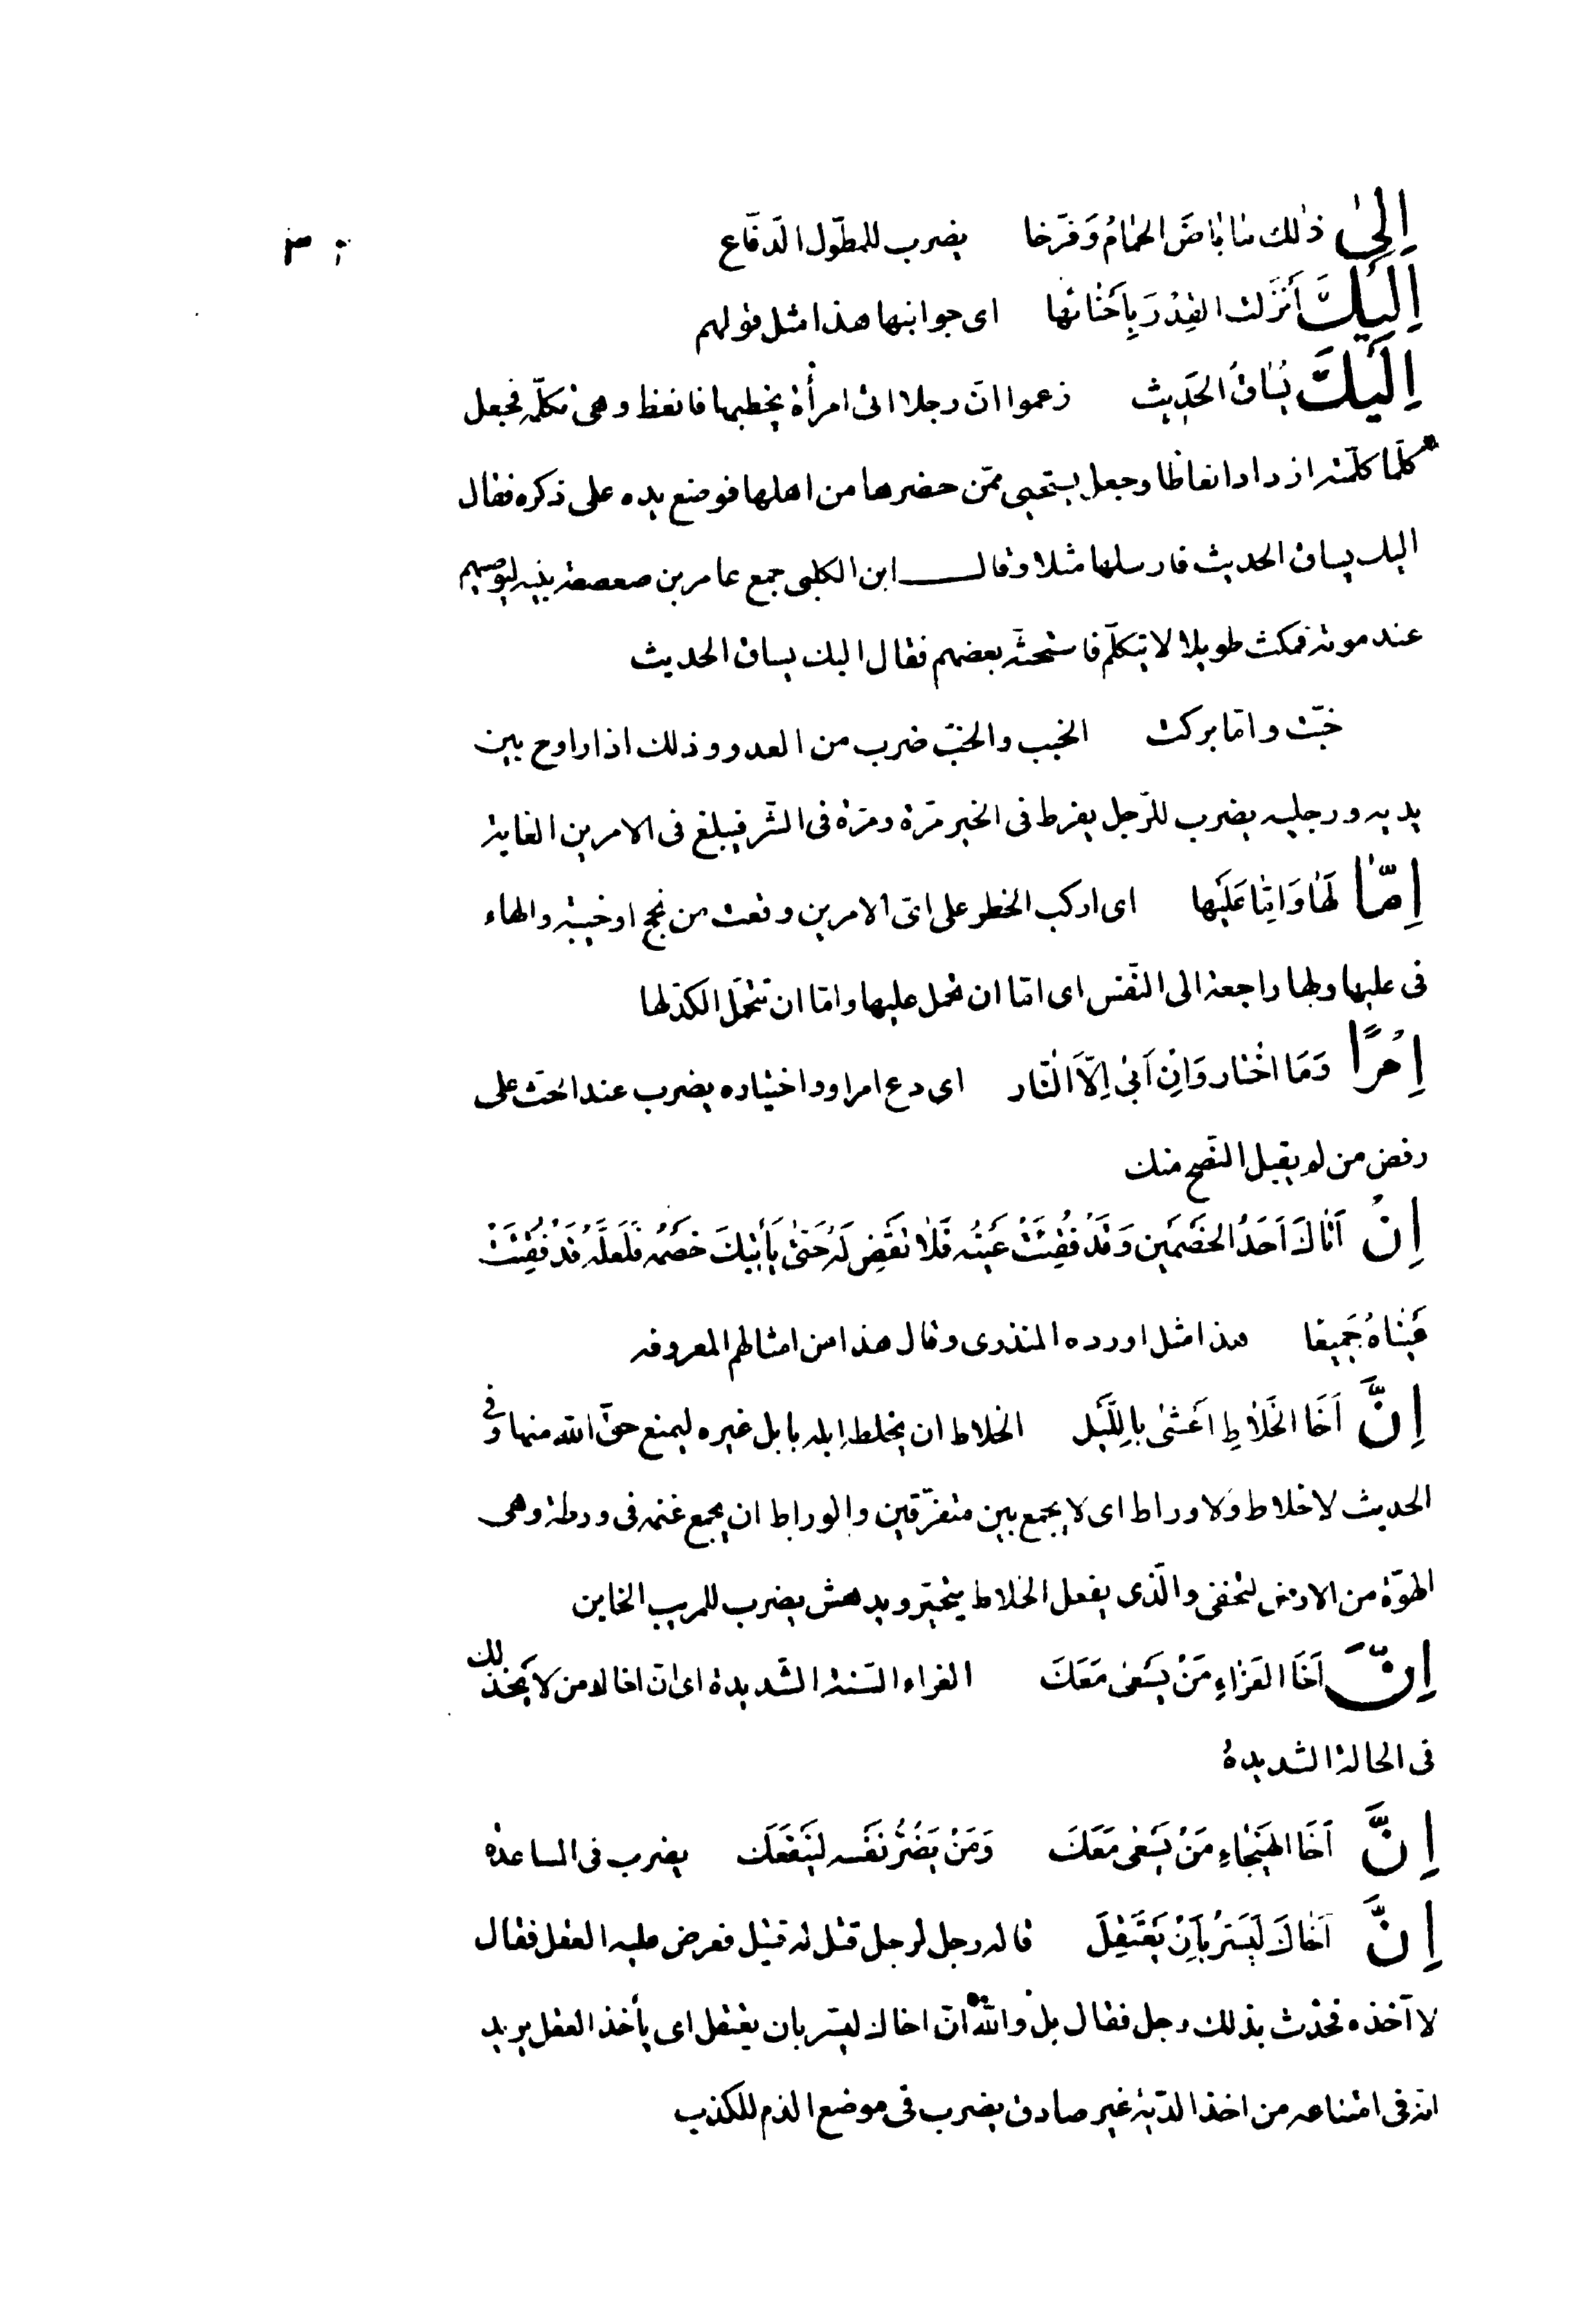 اِلىٰ ذٰلك مٰا بٰاضَ الحَمٰامُ وَفَرَّخا يضرب للمطول الدّفّاع
اِلَيْكَ اَنْزَلَت القِدْرَ بِاَحْنائها اى جوانبها هذا مثل قولهم
اِلَيْكَ يُسٰاقُ الحَدِيث زعموا انّ رجلا اتى امرأة يخطبها فانعظ وهى تكلّمه فجعل
كلّما كلّمته ازداد انعاظا وجعل يستحيى ممّن حضرها من اهلها فوضع يده على ذكره فقال
اليك يساق الحديث فارسلها مثلا وقال ابن الكلبى جمع عامر بن صعصعة بنيه ليوصيهم
عند موته فمكث طويلا لا يتكلّم فاستحثّه بعضهم فقال اليك يساق الحديث
خبّت وامّا بركت الخبب والخبّ ضرب من العدو وذلك اذا راوح بين
يديه ورجليه يضرب للرّجل يفرط فى الخير مرّة ومرّة فى الشّر فيبلغ فى الامرين الغاية
اِمّٰا لَهٰا وَاِمّٰا عَلَيْها اى اركب الخطر على اىّ الامرين وقعت من نجح او خيبة والهاء
فى عليها ولها راجعة الى النّفس اى امّا ان تحمل عليها وامّا ان تتحمّل الكدّ لها
اِمْرًا وَمَا اخْتار وَاِنْ اَبىٰ اِلّاَ النّار اى دع امرا واختياره يضرب عند الحثّ على
رفض من لم يقبل النّصح منك
اِنْ اَتٰاكَ اَحَدُ الخَصْمَين وَقَدْ فُقِئَتْ عَيْنُه فَلٰا تَقْضِ لَهُ حَتّىٰ يَأتِيْكَ خَصْمُه فَلَعَلَّهُ قَدْ فُقِئَتْ
عَيْناهُ جَمِيعًا هذا مثل اورده المنذرى وقال هذا من امثالهم المعروفه
اِنَّ اَخَا الخَلاٰطِ اَعْشىٰ بالِلَّيْل الخلاط ان يخلط اِبله بابل غيره ليمنع حقّ الله منها وفى
الحديث لا خلاط ولا وراط اى لا يجمع بين متفرّقين والوراط ان يجمع غنمه فى ورطة وهى
الهوّة من الارض لتخفى والّذى يفعل الخلاط يتحيّر ويدهش يضرب للمريب الخاين
اِنَّ اَخَا العَزٰاءِ مَنْ يَسْعىٰ مَعَكَ العزاء السّنة الشّديدة اى انّ اخاك من لا يَخذلك
فى الحالة الشديدة
اِنَّ اَخَا الهَيْجٰاءِ مَنْ يَسْعىٰ مَعَكَ وَمَنْ يَضُرُّ نَفْسه لِيَنْفَعَك يضرب فى المساعدة
اِنَّ اَخٰاكَ لَيُسَرُّ بِاَنْ يَعْتَقِلَ قاله رجل لرجل قتل له قتيل فعرض عليه العقل فقال
لا آخذه فحدّث بذلك رجل فقال بل والله انّ اخاك ليسّر بان يعتقل اى يأخذ العقل يريد
انّه فى امتناعه من اخذ الدّية غير صادق يضرب فى موضع الذم للكذب